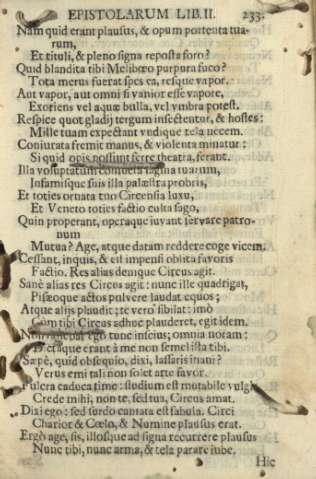 EPISTOLARUM LIB. II. 233.
Nam quid erant plausus, & opum portenta tua-
rum,
Et tituli, & pleno signa reposta foro?
Quid blandita tibi Melibœo purpura fuco?
Tota merus fuerat spes ea, resque vapor.
Aut vapor, aut omni si vanior esse vapore,
Exoriens vel aquæ bulla, vel vmbra potest.
Respice quot gladij tergum insectentur, & hostes:
Mille tuam expectant vndique tela necem.
Coniurata fremit manus, & violenta minatur:
Si quid opis possunt ferre theatra, ferant.
Illa voluptatum consueta sagina tuarum,
Infamisque suis illa palæstra probris,
Et toties ornata tuo Circensia luxu,
Et Veneto toties factio culta sago,
Quin properant, operaque iuvant servare patro-
num
Mutua? Age, atque datam reddere coge vicem.
Cessant, inquis, & est impensi oblita favoris
Factio. Res alias denique Circus agit.
Sanè alias res Circus agit: nunc ille quadrigas,
Pisæoque actos pulvere laudat equos;
Atque alijs plaudit; te verò sibilat: imò
Cùm tibi Circus adhuc plauderet, egit idem.
ego tunc inscius, omnia noram:
Detque erant à me non semel ista tibi.
Sæpè, quid obsequio, dixi, lassaris inani?
Verus emi tali non solet arte favor.
Fulcra caduca time: studium est mutabile vulgi,
Crede mihi, non te, sed tua, Circus amat.
Dixi ego: sed surdo cantata est fabula. Circi
Charior & Cœlo, & Numine plausus erat.
Ergò age, sis, illosque ad signa recurrere plausus
Nunc tibi, nunc arma, & tela parare iube.
Hic